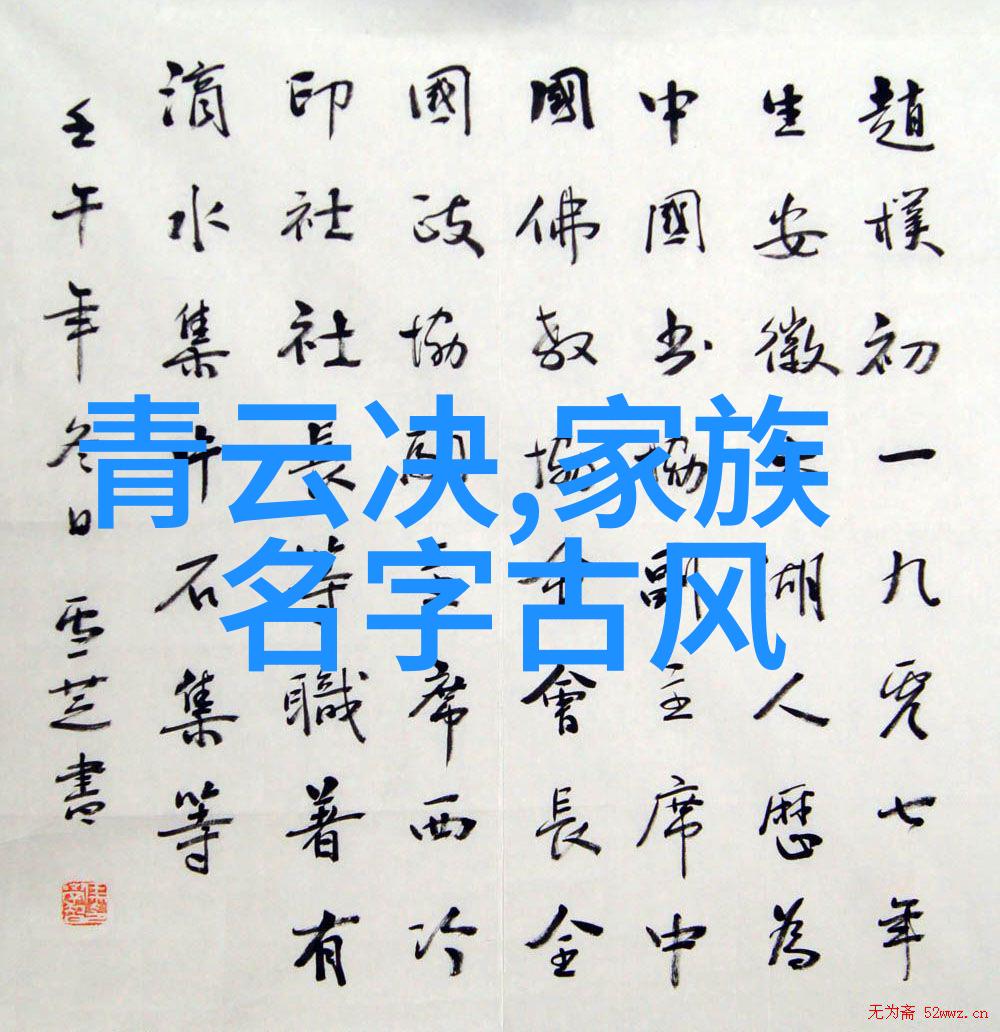 趙樸初一九零七年
生安徽太湖人歷為
中國书協副主席中
國佛教協会會長全
國政協副主席西冷
印社社長等職著有
滴水集片石集等
壬午年冬日雪芝書
青云决,家族
名字古风
无为斋 52wwz.cn